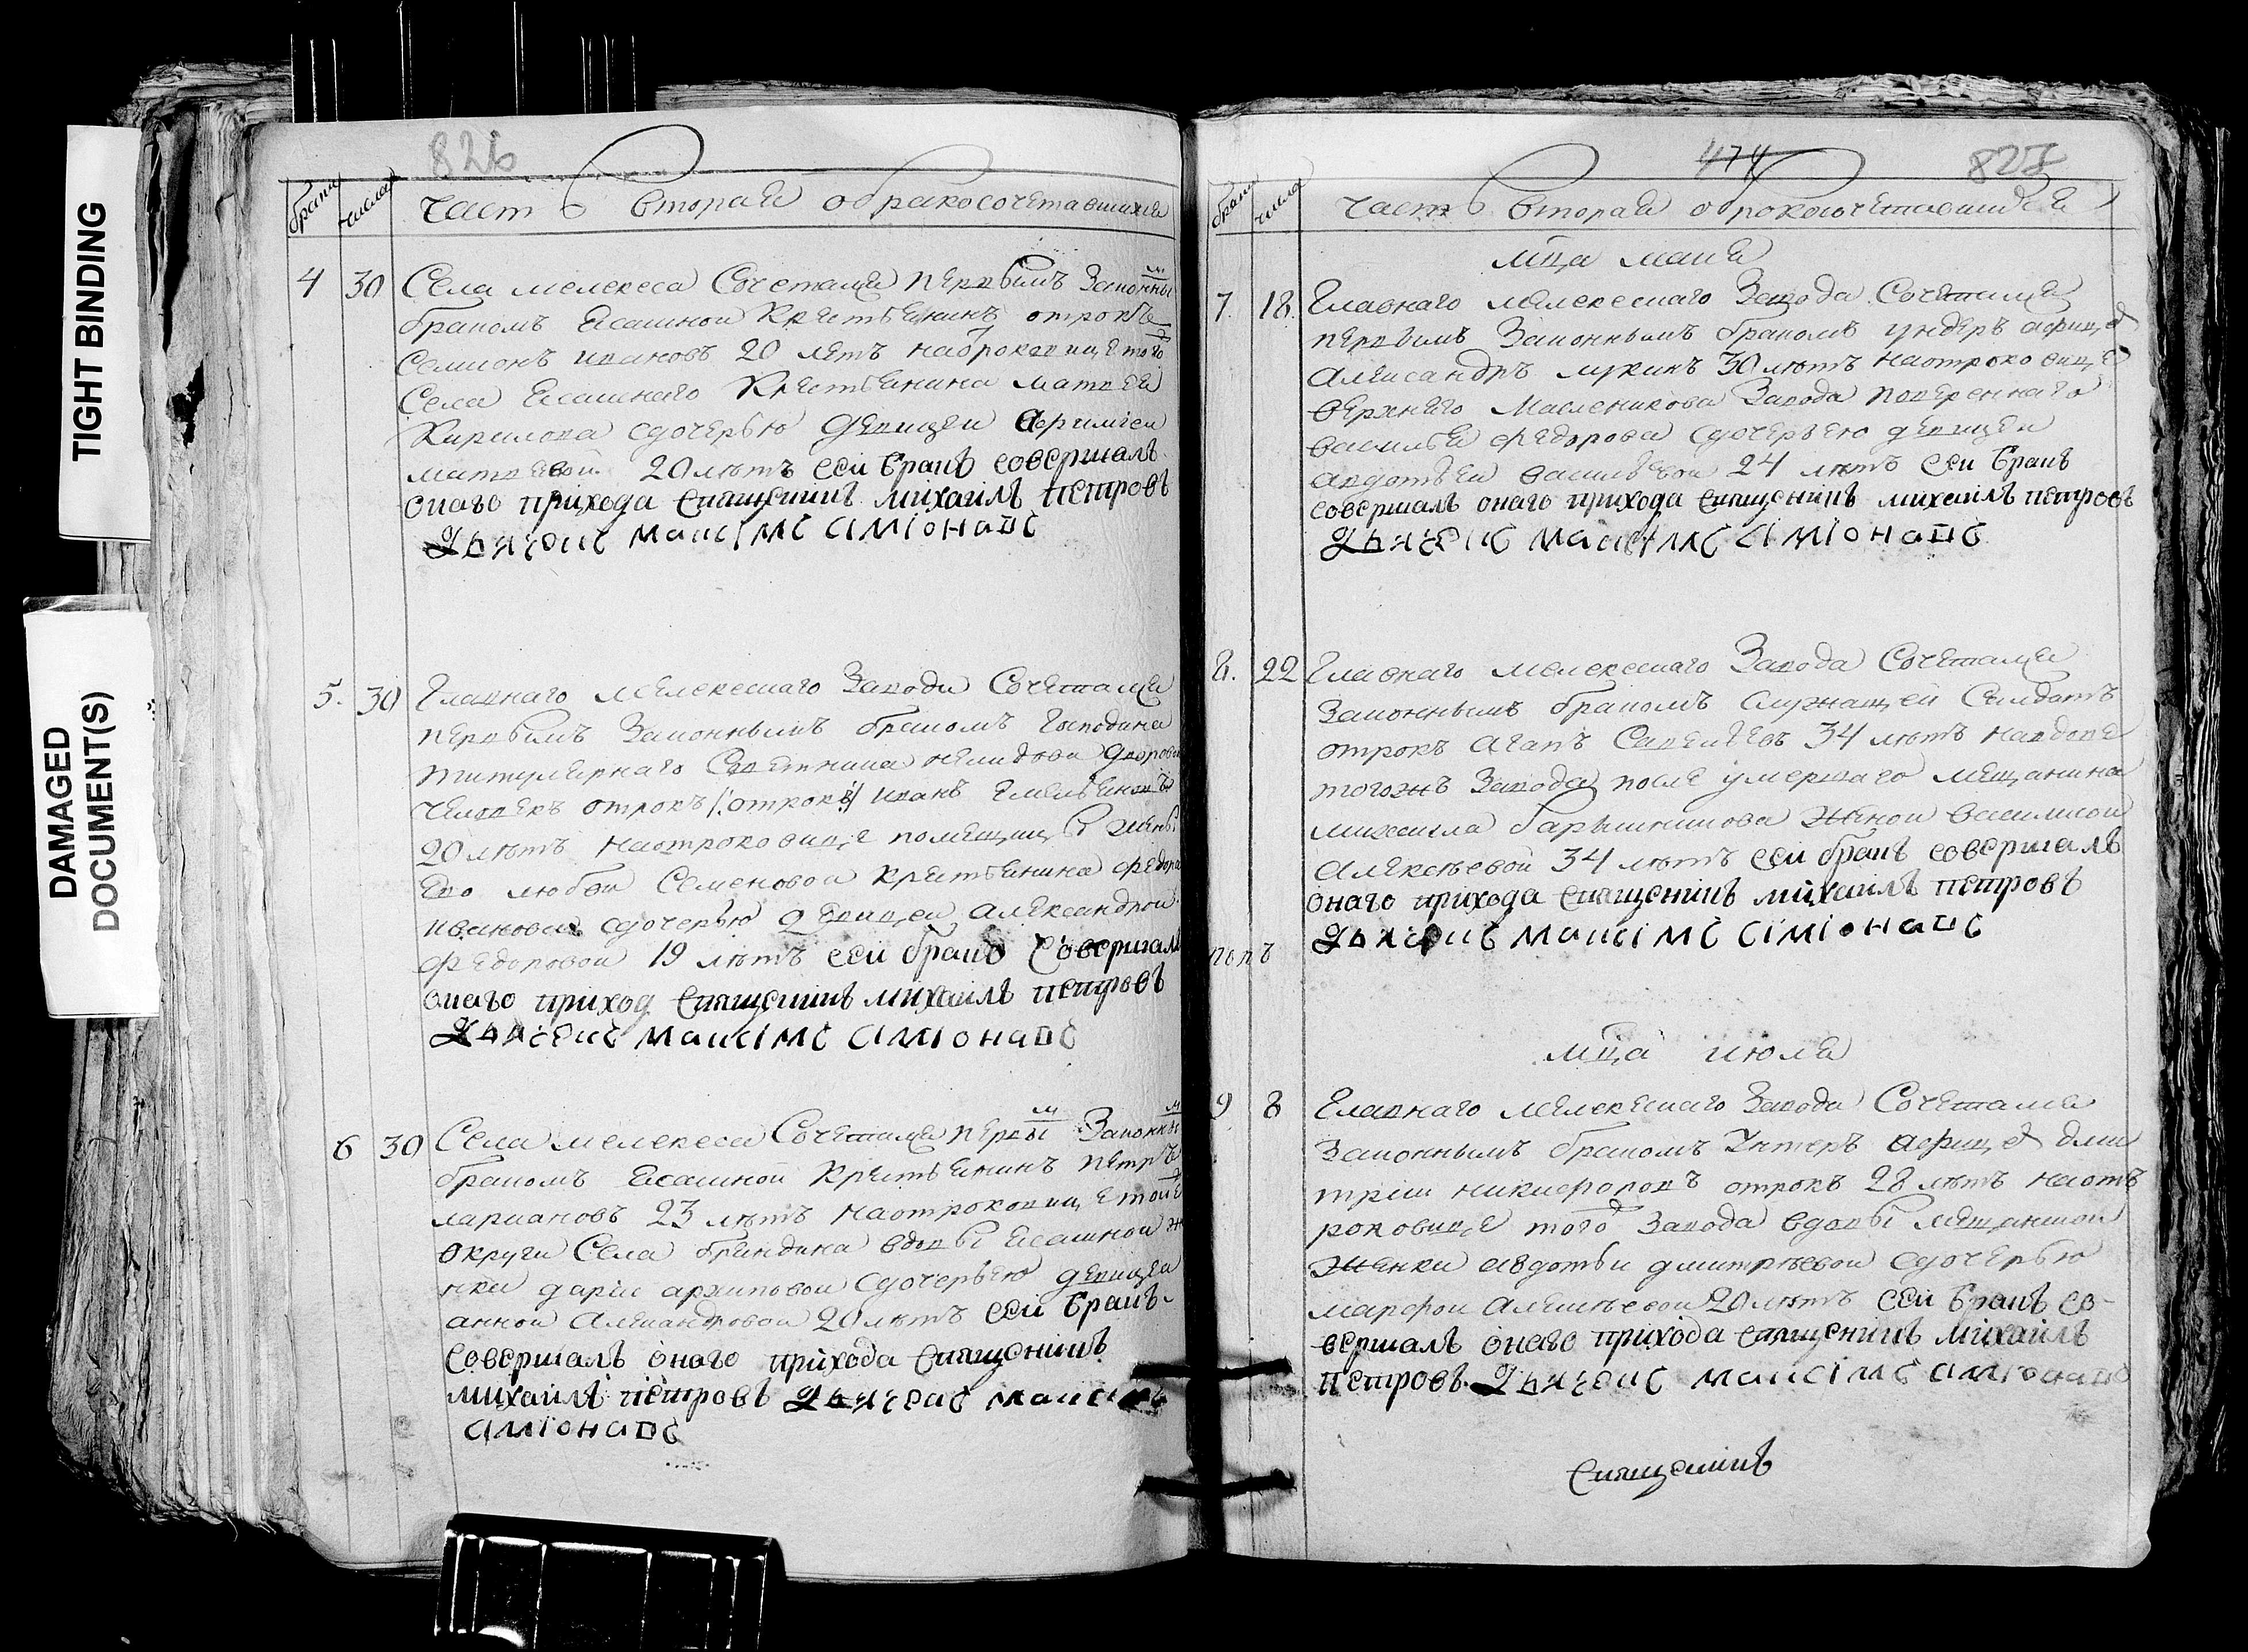 TIGHT BINDING
DAMAGED
DOCUMENT(S)
826
браки числа Часть вторая о бракосочетавшихся
4 30 Села мелекеса Сочетался первымъ Законны м
бракомъ Ясашной Крестьянинъ отрокъ
Семионъ ивановъ 20 летъ на отроковице того
Села Ясашнаго Крестьянина матвея
Кирилова сдочерью девицеи афимиеи
матвевой 20 летъ сеи бракъ совершалъ
онаго прихода священникъ михаилъ петровъ
Дьячокъ максимъ симионавъ
5. 30 Главнаго мелекескаго Завода Сочетался
первымъ Законнымъ бракомъ господина
титулярнаго Советника нелидова дворовой
человекъ отрокъ /:отрокъ:/ иванъ емельяновъ
20 летъ на отроковице помещицы жены
его любви Семеновои крестьянина федора
иванова сдочерью девицеи александрои
федоровои 19 летъ сеи бракъ совершалъ
онаго приход священникъ михаилъ петровъ
Дьячокъ максимъ симионавъ
6 30 Села мелекеса Сочетался первы м Законны м
бракомъ Ясашной Крестьянинъ петръ
лариановъ 23 летъ на отроковице тойже
округи Села бряндина вдовы Ясашной же
нки дарьи архиповои сдочерьею девицеи
анной Александровои 20 летъ сеи бракъ
совершалъ онаго прихода священникъ
михаилъ петровъ Дьячокъ максимъ
симионавъ
474 827
браки числа Часть вторая о бракосочетавшихся
мца маия
7. 18. Главнаго мелекескаго Завода Сочетался
первымъ Законнымъ бракомъ ундеръ афице р
Александръ лукинъ 30 летъ на отроковице
верхняго Масленикова Завода повереннаго
василья федорова сдочерьею девицеи
авдотьеи васильевои 24 летъ сеи бракъ
совершалъ онаго прихода священникъ михаилъ петровъ
Дьячокъ максимъ симионавъ
8. 22 Главнаго мелекескаго Завода Сочетался
Законнымъ бракомъ служащей Салдатъ
отрокъ агапъ Савельевъ 34 летъ на вдове
тогожъ Завода после умершаго мещанина
михаила барышникова женои василисои
Алексеевой 34 летъ сеи бракъ совершалъ
онаго прихода священникъ михаилъ петровъ
Дьячокъ максимъ симионавъ
попъ
мца июля
9 8 Главнаго мелекескаго Завода Сочетался
Законнымъ бракомъ Унтеръ афице р дми
трии никифоровъ отрокъ 28 летъ на от
роковице того Завода вдовы мещанскои
Женки авдотьи дмитриевои сдочерью
марфои Алексеевои 20 летъ сеи бракъ со-
вершалъ онаго прихода священникъ михаилъ
петровъ. Дьячокъ максимъ симионавъ
священникъ